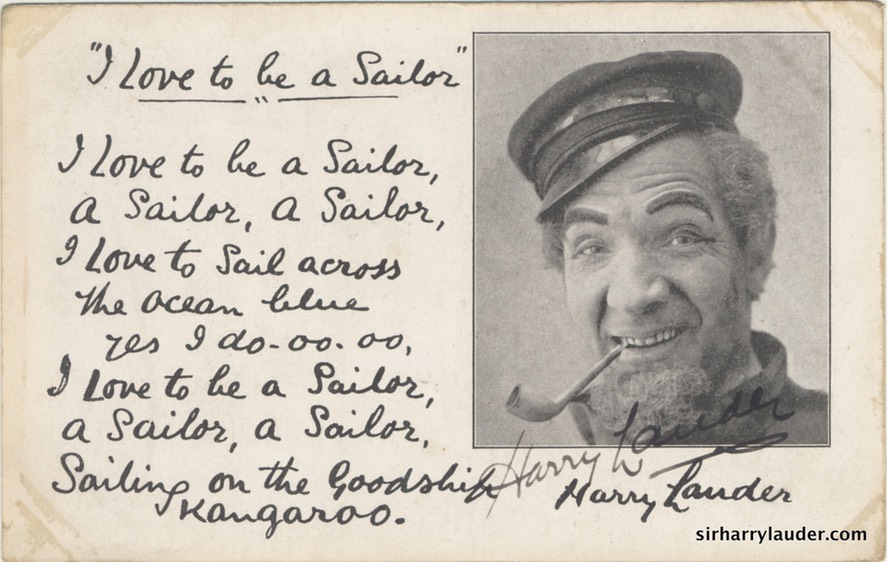 "I Love to be a Sailor"
I Love to be a Sailor,
a Sailor, a Sailor,
I Love to Sail across
the ocean blue
yes I do-oo-oo,
I Love to be a Sailor,
a Sailor, a Sailor,
Sailing on the Goodship
Kangaroo.
Harry Lauder
Harry Lauder
sirharrylauder.com